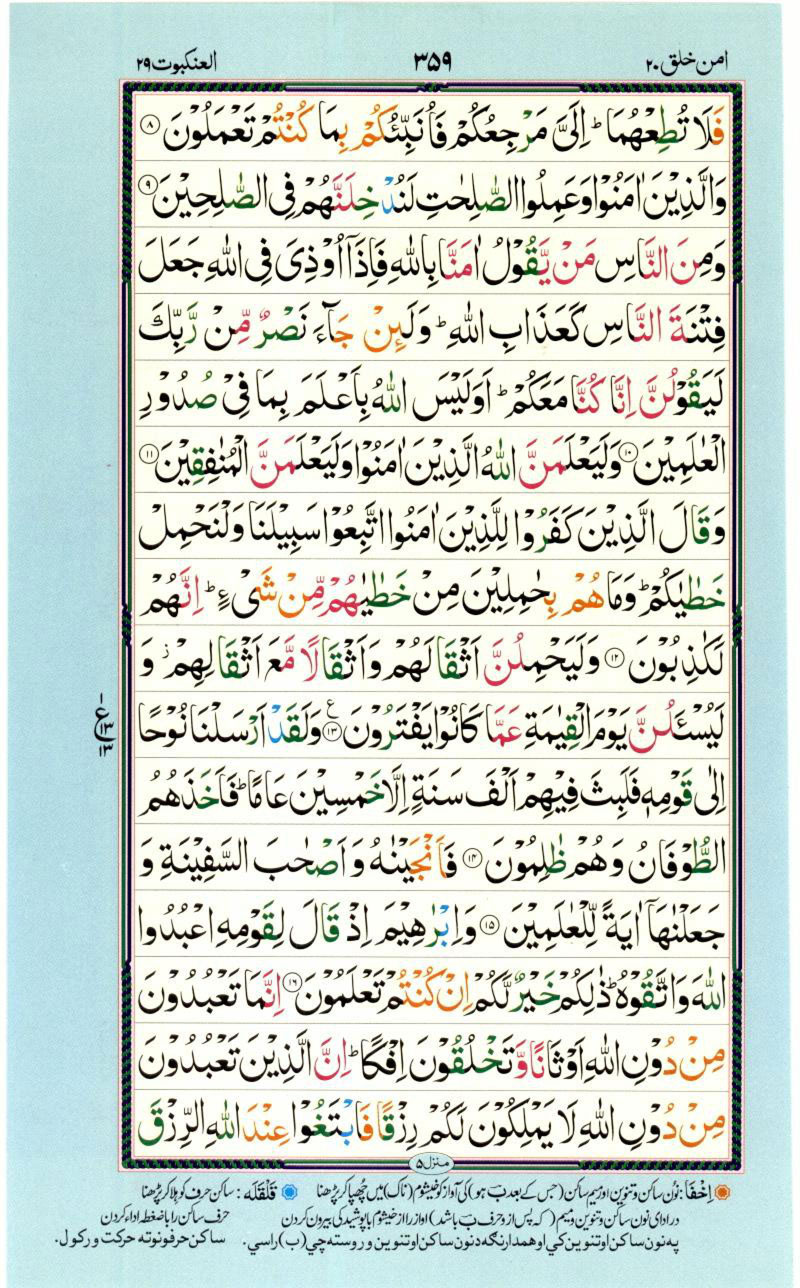 امن خلق ۲۰ ۳۵۹ العنکبوت ۲۹
فَلَا تُطِعْهُمَا ؕ اِلَیَّ مَرْجِعُكُمْ فَاُنَبِّئُكُمْ بِمَا كُنْتُمْ تَعْمَلُوْنَ ۸
وَالَّذِیْنَ اٰمَنُوْا وَعَمِلُوا الصّٰلِحٰتِ لَنُدْخِلَنَّهُمْ فِی الصّٰلِحِیْنَ ۹
وَمِنَ النَّاسِ مَنْ یَّقُوْلُ اٰمَنَّا بِاللّٰهِ فَاِذَاۤ اُوْذِیَ فِی اللّٰهِ جَعَلَ
فِتْنَةَ النَّاسِ كَعَذَابِ اللّٰهِ ؕ وَلَىِٕنْ جَآءَ نَصْرٌ مِّنْ رَّبِّكَ
لَیَقُوْلُنَّ اِنَّا كُنَّا مَعَكُمْ ؕ اَوَلَیْسَ اللّٰهُ بِاَعْلَمَ بِمَا فِیْ صُدُوْرِ
الْعٰلَمِیْنَ ۱۰ وَلَیَعْلَمَنَّ اللّٰهُ الَّذِیْنَ اٰمَنُوْا وَلَیَعْلَمَنَّ الْمُنٰفِقِیْنَ ۱۱
وَقَالَ الَّذِیْنَ كَفَرُوْا لِلَّذِیْنَ اٰمَنُوا اتَّبِعُوْا سَبِیْلَنَا وَلْنَحْمِلْ
خَطٰیٰكُمْ ؕ وَمَا هُمْ بِحٰمِلِیْنَ مِنْ خَطٰیٰهُمْ مِّنْ شَیْءٍ ؕ اِنَّهُمْ
لَكٰذِبُوْنَ ۱۲ وَلَیَحْمِلُنَّ اَثْقَالَهُمْ وَاَثْقَالًا مَّعَ اَثْقَالِهِمْ ز وَ
لَیُسْـَٔلُنَّ یَوْمَ الْقِیٰمَةِ عَمَّا كَانُوْا یَفْتَرُوْنَ ۱۳ ع وَلَقَدْ اَرْسَلْنَا نُوْحًا
ع ۱۳ ۱۳
اِلٰی قَوْمِهٖ فَلَبِثَ فِیْهِمْ اَلْفَ سَنَةٍ اِلَّا خَمْسِیْنَ عَامًا ؕ فَاَخَذَهُمُ
الطُّوْفَانُ وَهُمْ ظٰلِمُوْنَ ۱۴ فَاَنْجَیْنٰهُ وَاَصْحٰبَ السَّفِیْنَةِ وَ
جَعَلْنٰهَاۤ اٰیَةً لِّلْعٰلَمِیْنَ ۱۵ وَاِبْرٰهِیْمَ اِذْ قَالَ لِقَوْمِهِ اعْبُدُوا
اللّٰهَ وَاتَّقُوْهُ ؕ ذٰلِكُمْ خَیْرٌ لَّكُمْ اِنْ كُنْتُمْ تَعْلَمُوْنَ ۱۶ اِنَّمَا تَعْبُدُوْنَ
مِنْ دُوْنِ اللّٰهِ اَوْثَانًا وَّتَخْلُقُوْنَ اِفْكًا ؕ اِنَّ الَّذِیْنَ تَعْبُدُوْنَ
مِنْ دُوْنِ اللّٰهِ لَا یَمْلِكُوْنَ لَكُمْ رِزْقًا فَابْتَغُوْا عِنْدَ اللّٰهِ الرِّزْقَ
منزل ۵
اِخْفَا: نون ساکن و تنوین اور میم ساکن (جس کے بعد ب ہو) کی آواز کو خیشوم (ناک) میں چھپا کر پڑھنا قَلْقَلَه: ساکن حرف کو ہلا کر پڑھنا
در ادای نون ساکن و تنوین و میم (که پس از و حرف ب باشد) آواز را از خیشوم با پوشیدگی بیرون کردن حرف ساکن را با ضغط اداء کردن
په نون ساکن او تنوین کي او همدارنگه د نون ساکن او تنوین وروسته چي (ب) راسي. ساکن حرفونو ته حرکت ورکول.